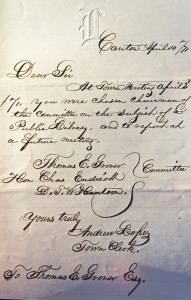 Canton April 10, /71
Dear Sir
At Town Meeting April 3d
1871. you were chosen chairman of
the Committee on the Subject of a
Public Library, and to report at
a future meeting.
Thomas E. Grover
Hon. Chas Endicott
D. S. W.
Committee
Yours truly,
Andrew Lopez
Town Clerk.
To Thomas E. Grover Esq.